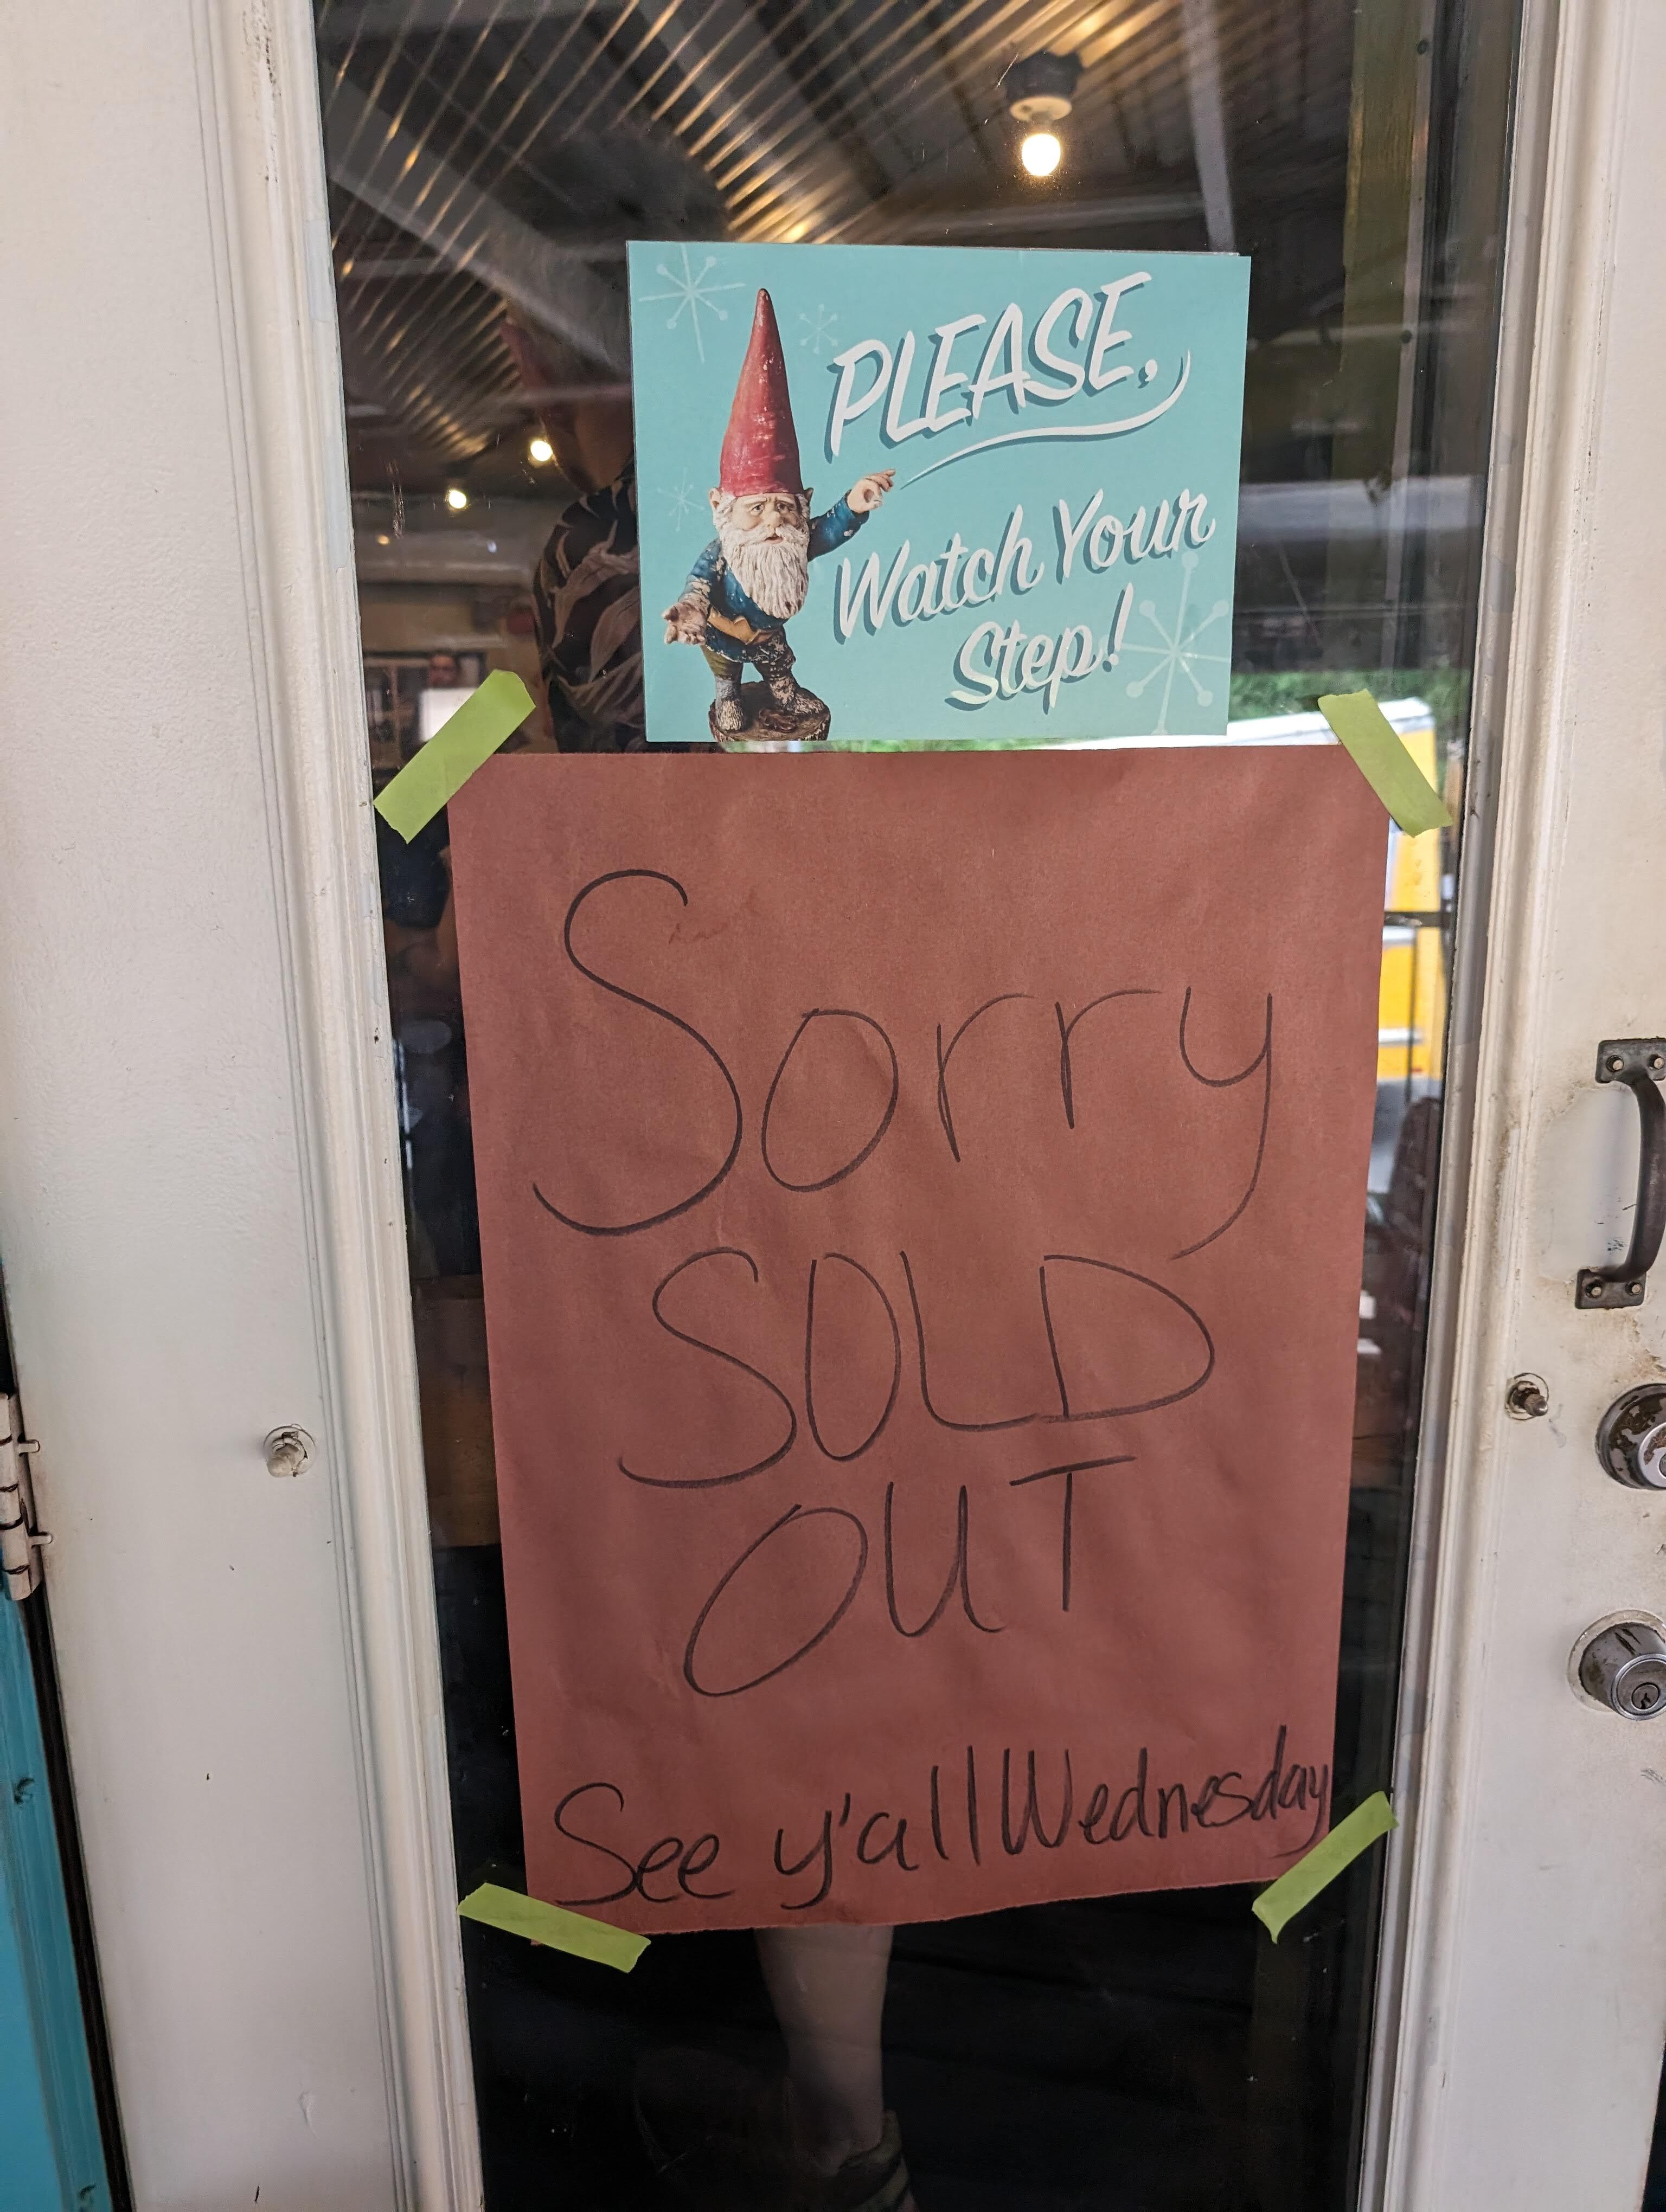 PLEASE,
Watch Your
Step!
Sorry
SOLD
OUT
See y'all Wednesday